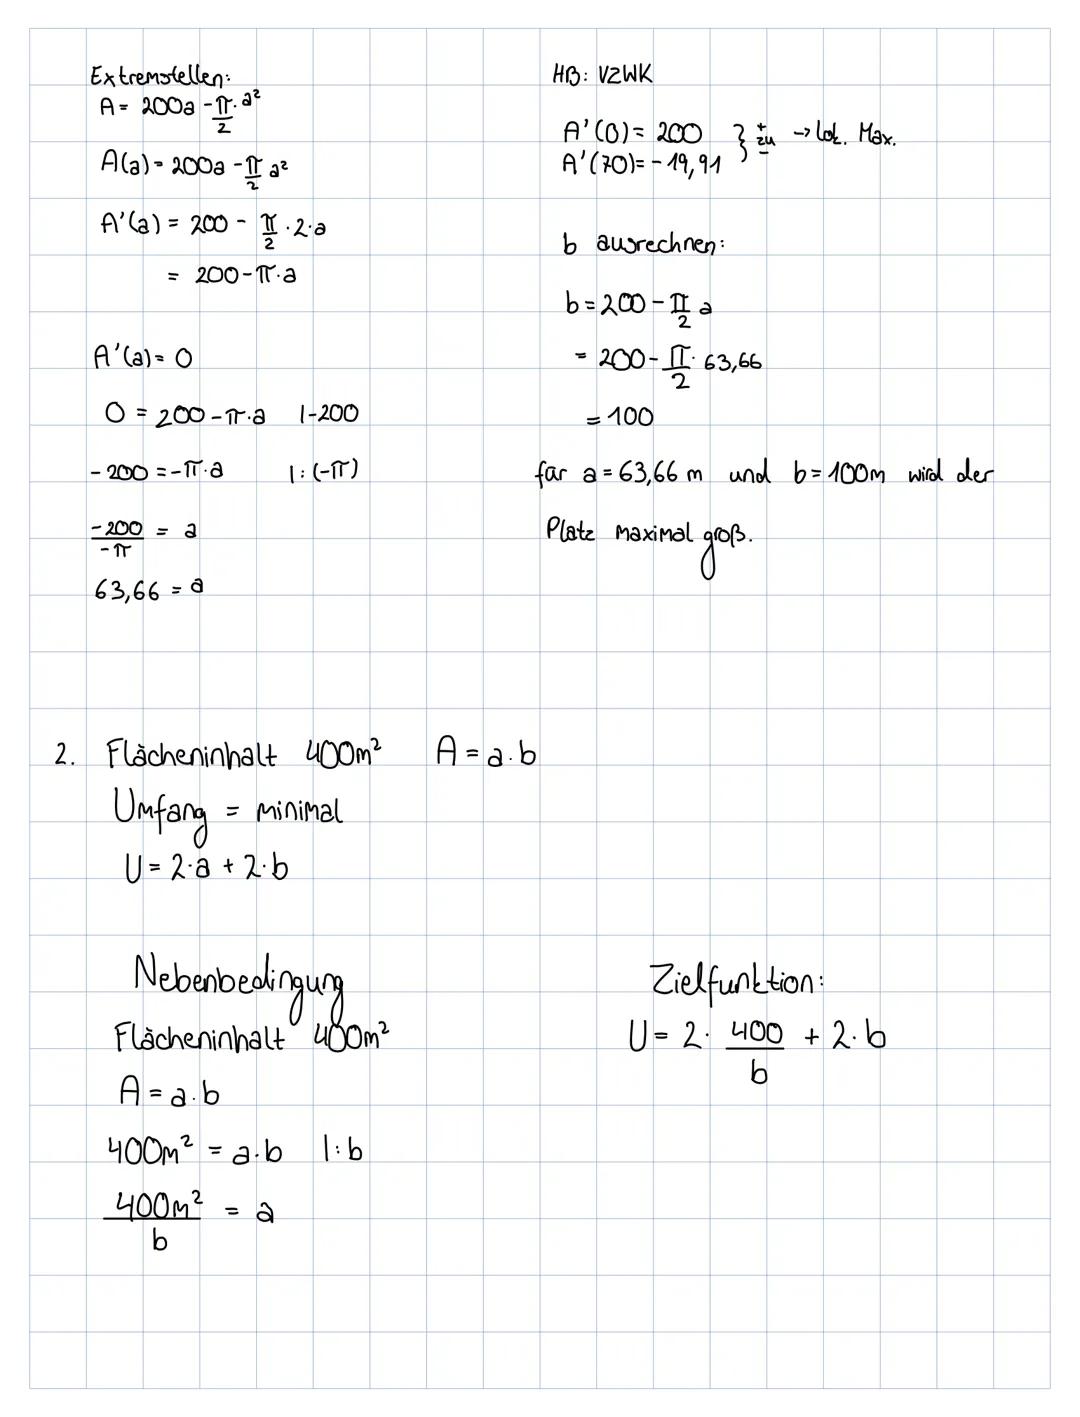 Extremstellen:
A = 200a - π/2 · a²
A(a) = 200a - π/2 a²
A'(a) = 200 - π/2 · 2 · a
= 200 - π · a
A'(a) = 0
0 = 200 - π · a |-200
-200 = -π · a |: (-π)
-200/-π = a
63,66 = a
HB: VZWK
A'(0) = 200 } + zu - → lok. Max.
A'(70) = -19,91
b ausrechnen:
b = 200 - π/2 a
= 200 - π/2 · 63,66
= 100
für a = 63,66 m und b = 100m wird der
Platz maximal groß.
2. Flächeninhalt 400m² A = a · b
Umfang = minimal
U = 2 · a + 2 · b
Nebenbedingung
Flächeninhalt 400m²
A = a · b
400m² = a · b |: b
400m²/b = a
Zielfunktion:
U = 2 · 400/b + 2 · b